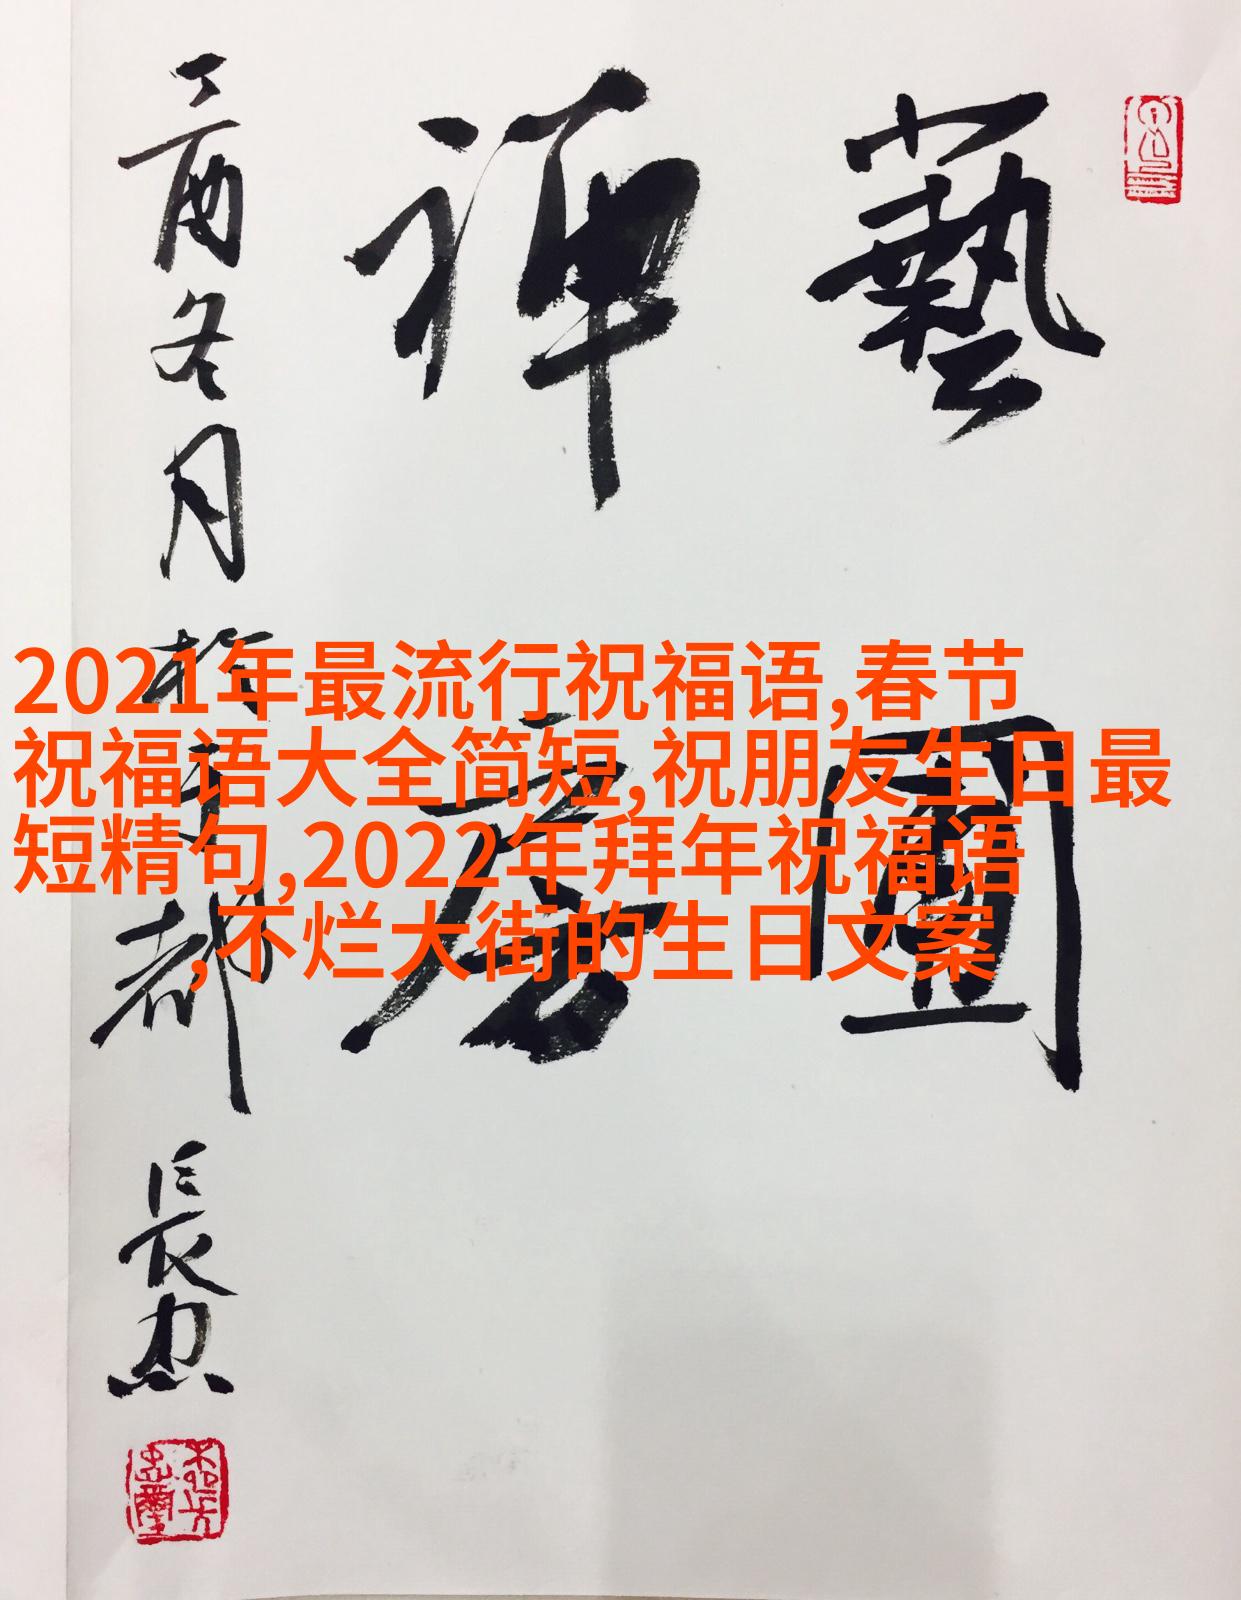 藝圃
禅房
丁酉冬月
於京都
長忠
2021年最流行祝福语,春节
祝福语大全简短,祝朋友生日最
短精句,2022年拜年祝福语
,不烂大街的生日文案